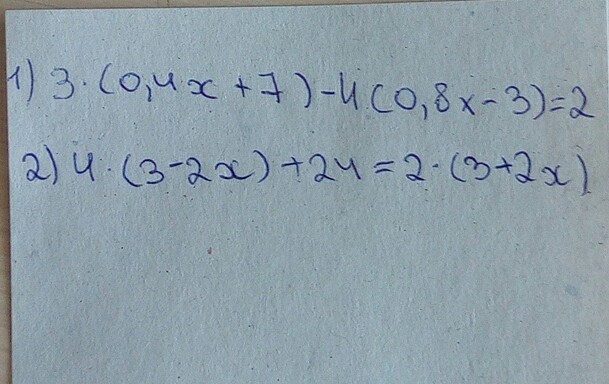 1) 3·(0,4x+7)-4(0,8x-3)=2
2) 4·(3-2x)+24=2·(3+2x)